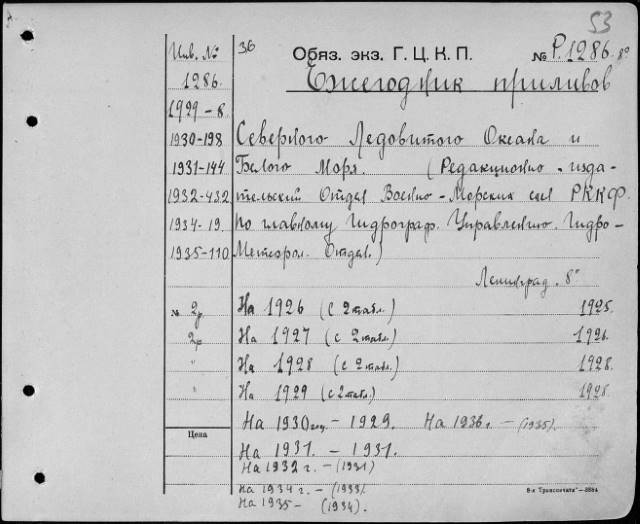 53
Инв. № 36 Обяз. экз. Г. Ц. К. П. № Р.1286. 8°
1286. Ежегодник приливов
1929-8.
1930-198 Северного Ледовитого Океана и
1931-144 Белого Моря. (Редакционно-изда-
1932-432 тельский Отдел Военно-Морских сил РККФ.
1934-19. по главному Гидрограф. Управлению. Гидро-
1935-110 Метеорол. Отдел.)
Ленинград. 8°
№ 2р На 1926 (с 2 табл.) 1925.
2р На 1927 (с 2 табл.) 1926.
" На 1928 (с 2 табл.) 1928.
" На 1929 (с 2 табл.) 1928.
На 1930 - 1929. На 1936 г. - (1935).
Цена
На 1931. - 1931.
На 1932 г. - (1931)
На 1934 г. - (1933).
На 1935 - (1934).